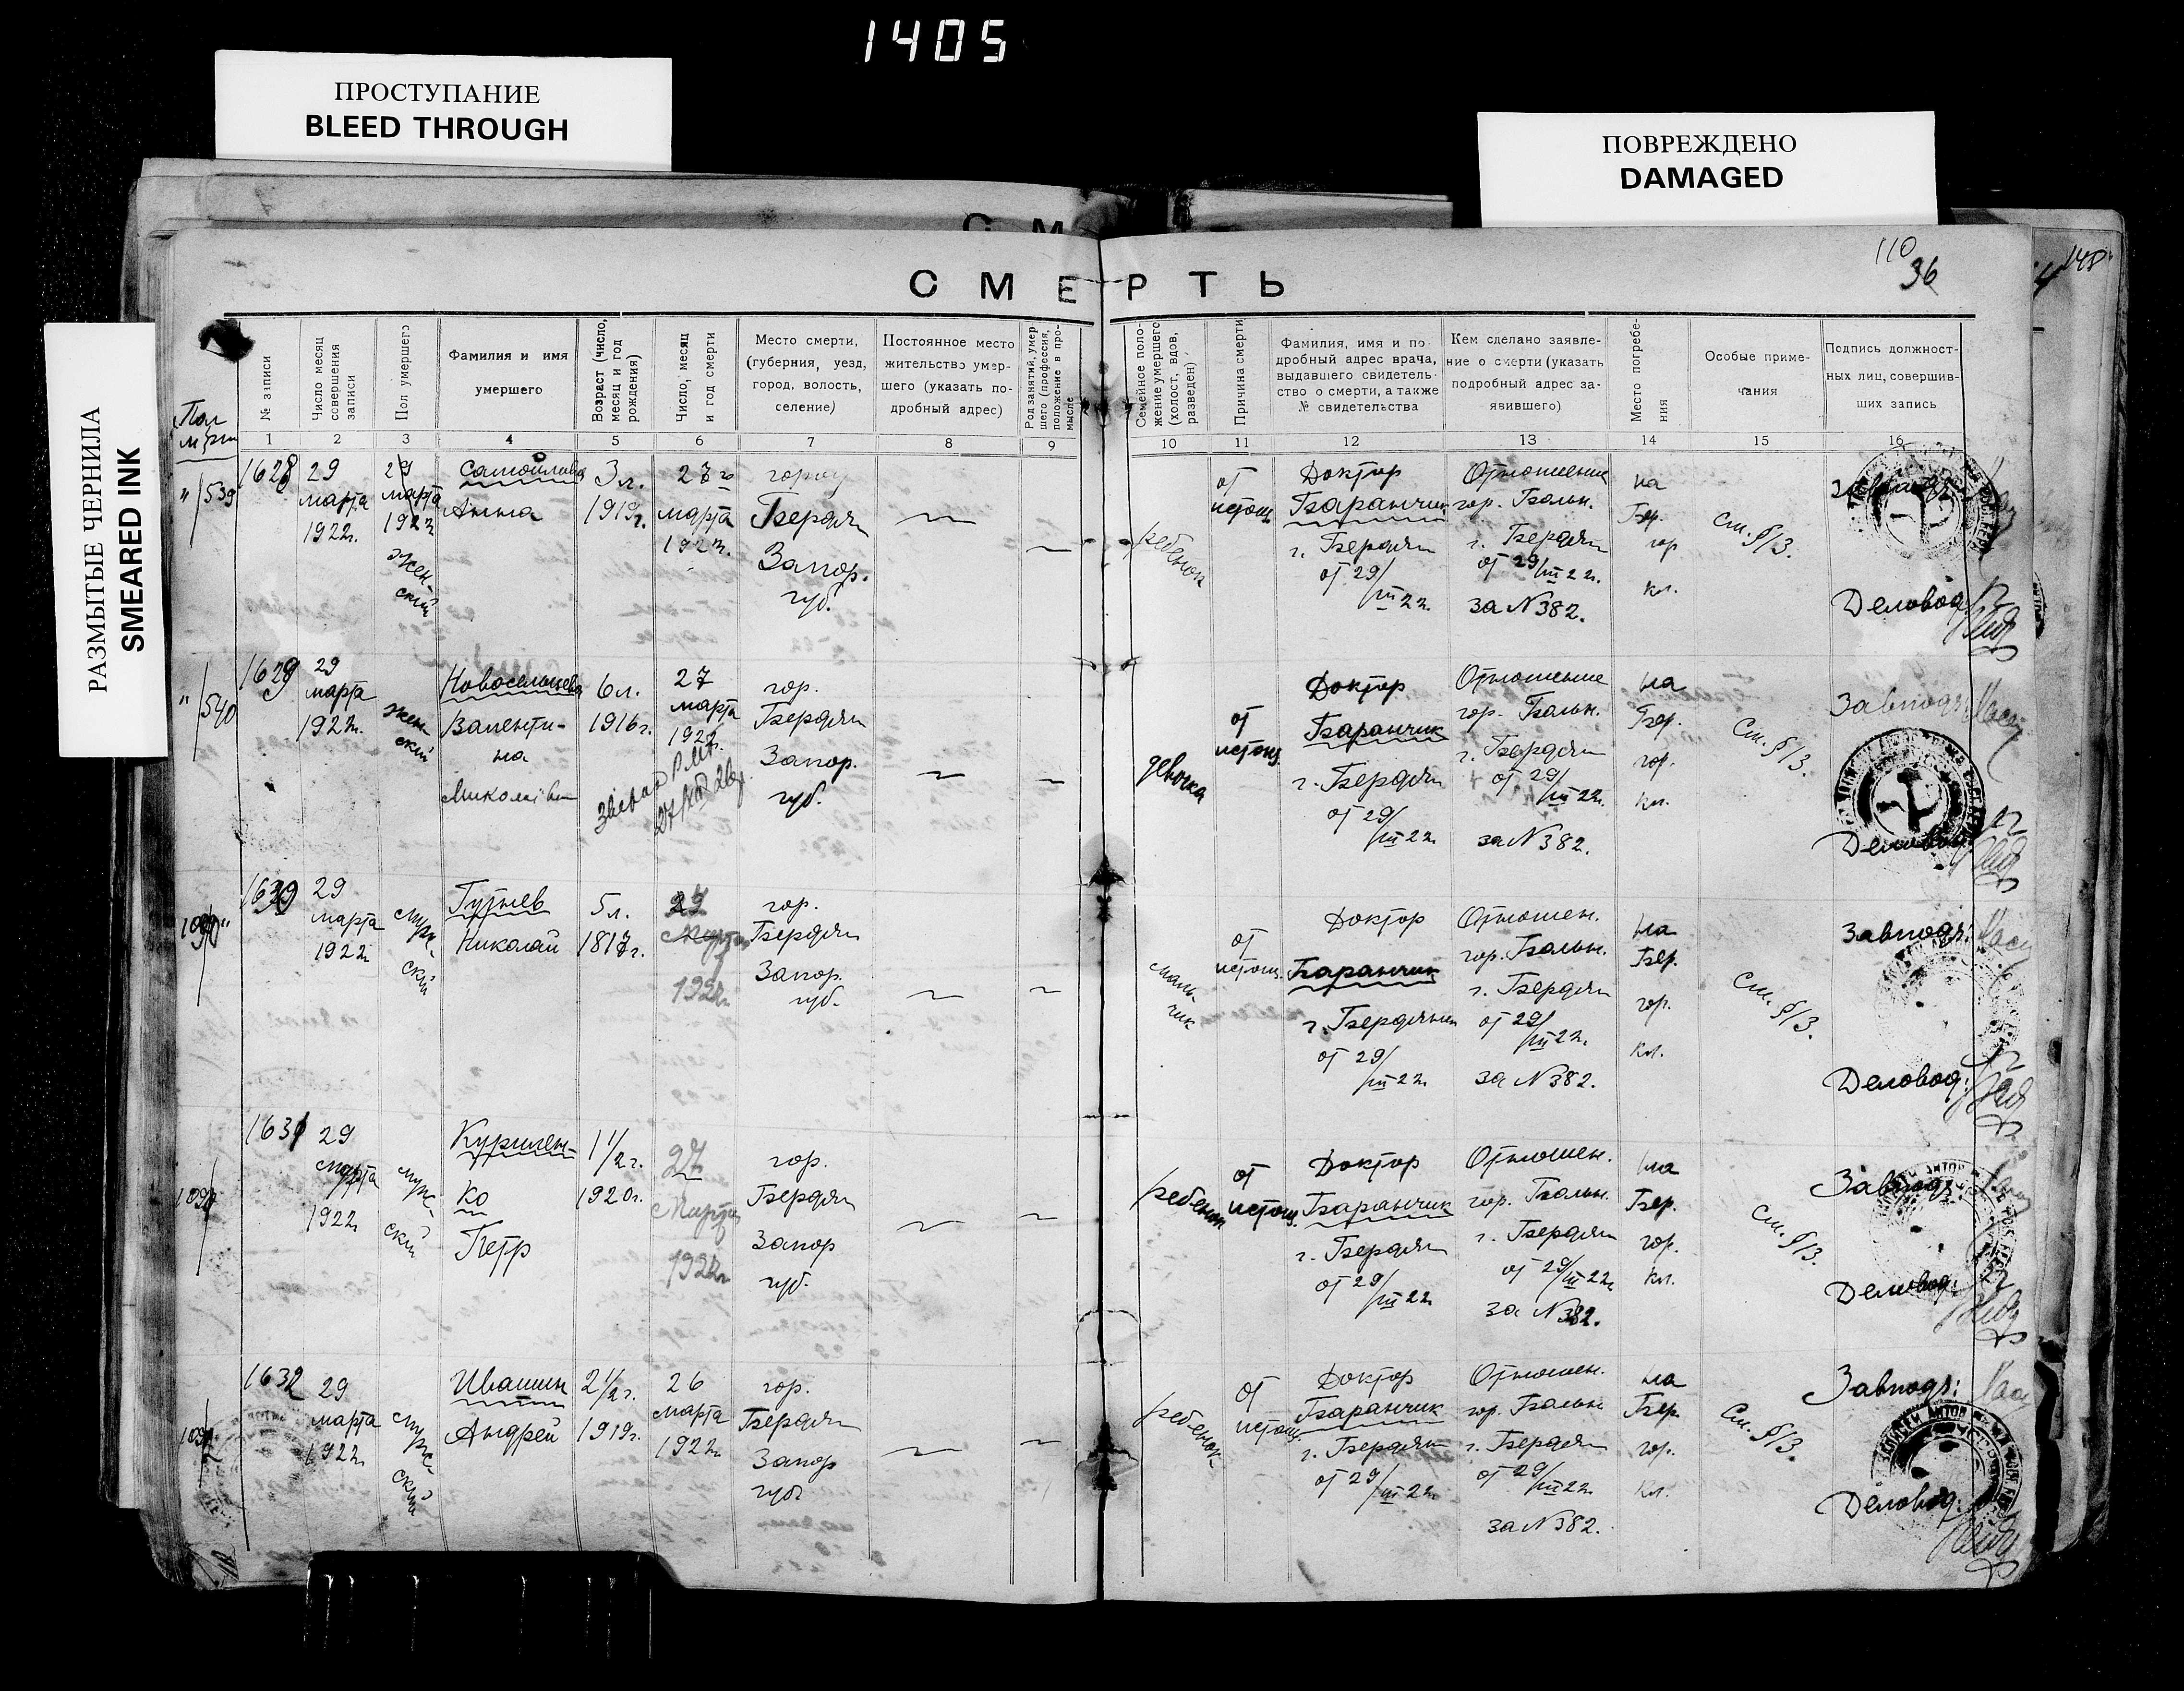 1405
ПРОСТУПАНИЕ
BLEED THROUGH
ПОВРЕЖДЕНО
DAMAGED
РАЗМЫТЫЕ ЧЕРНИЛА
SMEARED INK
110
36
СМЕРТЬ
№ записи
Число месяц совершения записи
Пол умершего
Фамилия и имя умершего
Возраст (число, месяц и год рождения)
Число, месяц и год смерти
Место смерти, (губерния, уезд, город, волость, селение)
Постоянное место жительство умершего (указать подробный адрес)
Род занятий, умершего (профессия, положение в промысле
Семейное положение умершего (холост, вдов, разведен)
Причина смерти
Фамилия, имя и подробный адрес врача, выдавшего свидетельство о смерти, а также № свидетельства
Кем сделано заявление о смерти (указать подробный адрес заявившего)
Место погребения
Особые примечания
Подпись должностных лиц, совершивших запись
1 2 3 4 5 6 7 8 9 10 11 12 13 14 15 16
" 539
1628
29 марта 1922г.
29 марта 1922
женский
Самойлова Анна
3 л. 1919г.
27го марта 1922г.
город Бердян Запор. губ.
ребенок
от истощ
Доктор Баранчик г. Бердян от 29/III 22г.
Отношение гор. больн. г. Бердян от 29/III 22г. за N 382.
на Бер. гор кл.
см. §/3.
Деловод
" 540
1629
29 марта 1922г.
женский
Новосельцева Валентина
6 л. 1916г.
27 марта 1922г.
гор. Бердян Запор. губ.
девочка
от истощ
Доктор Баранчик г. Бердян от 29/III 22г.
Отношение гор. больн. г. Бердян от 29/III 22г. за N 382.
на Бер. гор. кл.
См. §/3.
Завподз:
Деловод
29 марта 1922г
мужский
Гутнев Николай
5 л. 1817г.
27 Марта 1922г
гор. Бердян Запор. губ.
мальчик
от истощ.
Доктор Баранчик г. Бердянск от 29/III 22г.
Отношен. гор. больн. г. Бердян от 29/III 22г. за N 382.
на Бер. гор. кл.
См. §/3.
Завподз:
Деловод:
1631
29 марта 1922г
мужский
Куриленко Петр
1 1/2 г. 1920г.
27 Марта 1922г
гор. Бердян Запор губ.
ребенок
от истощ.
Доктор Баранчик г. Бердян от 29/III 22г.
Отношен. гор. больн. г. Бердян от 29/III 22г. за N 382.
на Бер. гор. кл.
См. §/3.
Завподз:
Деловод:
1632
29 марта 1922г.
мужский
Ивашин Андрей
2 1/2 г. 1919г.
26 марта 1922г.
гор. Бердян Запор губ
ребенок
от истощ.
Доктор Баранчик г. Бердян от 29/III 22г.
Отношен. гор. больн г. Бердян от 29/III 22г. за N 382.
на Бер. гор. кл.
См. §/3.
Завподз:
Деловод: